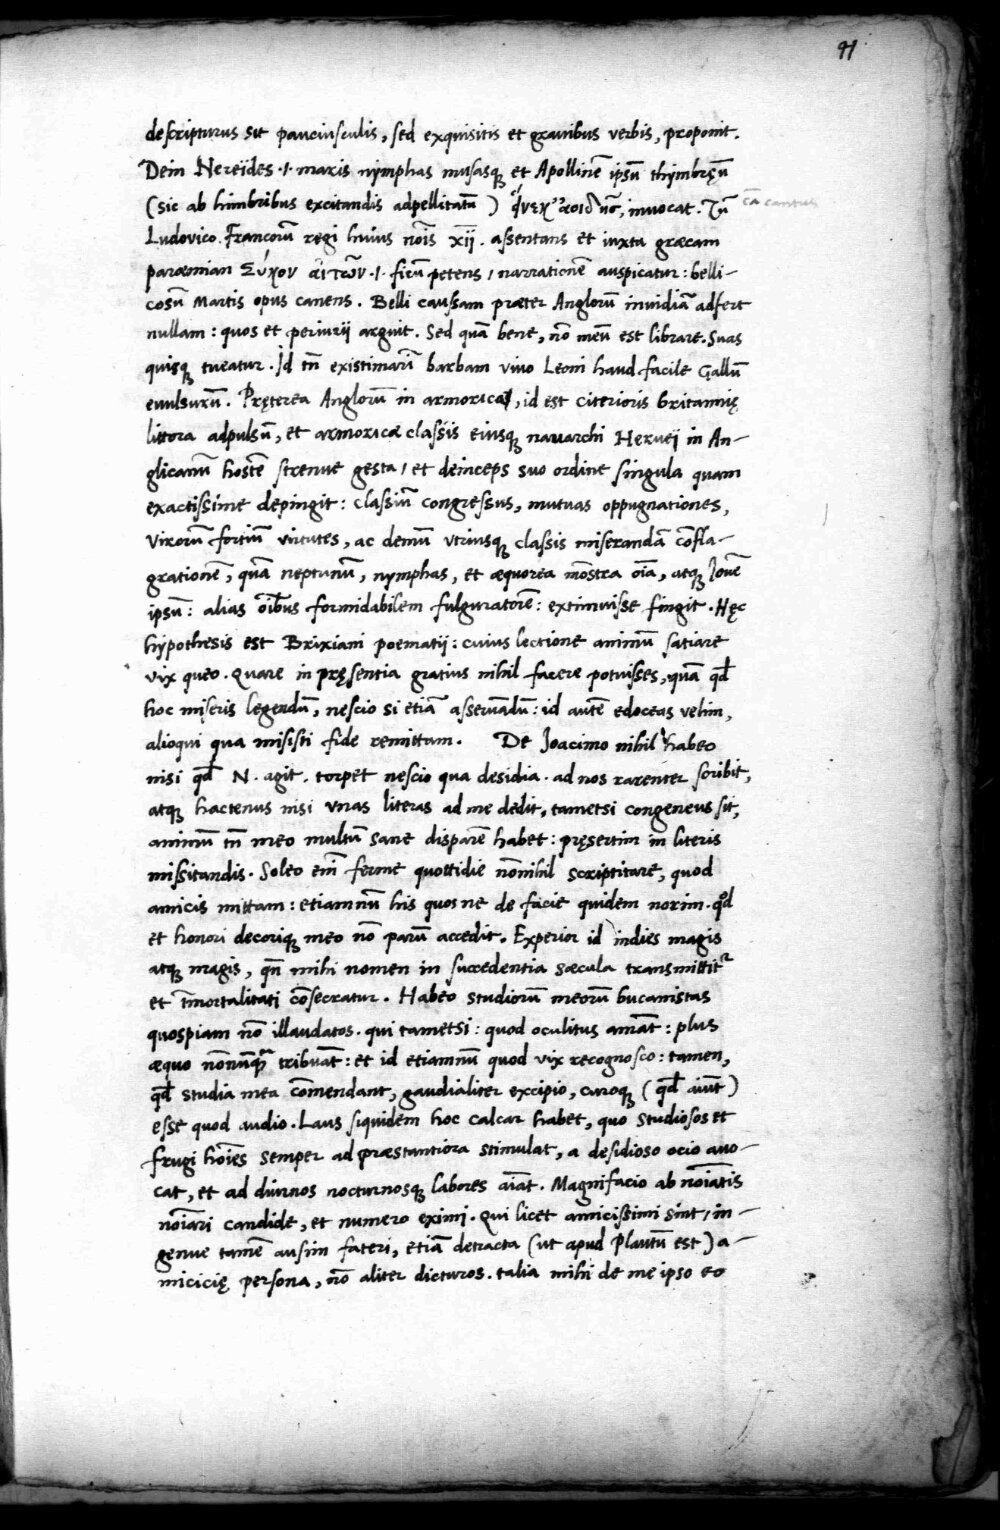 91
descripturus sit pauciusculis, sed exquisitis et grauibus verbis, proponit.
Dein Nereides .i. maris nymphas musasq et Apollinē ipsū thimbręū
(sic ab himbribus excitandis adpellitatū) invocat. Tū
cā cantus
Ludovico Francorū regi huius nōis xij. assentans et iuxta græcam
paræmian Σύκον αἰτῶν .i. ficū petens, narrationē auspicatur: belli-
cosū Martis opus canens. Belli caussam præter Anglorū invidiā adfert
nullam: quos et periurij arguit. Sed quā bene, nō meū est librare. Suas
quisq tueatur. Id tn̄ existimari barbam vivo Leoni haud facile Gallū
evulsurū. Pręterea Anglorū in armorica, id est citerioris britannię
littora adpulsū, et armoricæ classis eiusq navarchi Hervei in An-
glicanū hostē strenue gesta, et deinceps suo ordine singula quam
exactissime depingit: classiū congressus, mutuas oppugnationes,
virorū fortiū virtutes, ac demū vtriusq classis miserandā cōfla-
grationē, quā neptunū, nymphas, et æquorea mōstra oīa, atq Jovē
ipsū: alias oībus formidabilem fulguratorē: extimuisse fingit. Hęc
hypothesis est Brixiani poematij: cuius lectione animū satiare
vix queo. Quare in pręsentia gratius nihil facere potuisses, quā qd
hoc miseris legendū, nescio si etiā asservandū: id autē edoceas velim,
alioqui qua misisti fide remittam. De Joacimo nihil habeo
nisi qd N. agit. torpet nescio qua desidia. ad nos rarenter scribit,
atq hactenus nisi vnas literas ad me dedit, tametsi congeneus sit,
animū tn̄ meo multū sane disparē habet: pręsertim in literis
missitandis. Soleo enī ferme quottidie nōnihil scriptitare, quod
amicis mittam: etiamnū his quos ne de facie quidem norim. qd
et honori decoriq meo nō parū accedit. Experior id indies magis
atq magis, qn̄ mihi nomen in succedentia sæcula transmittit
et īmortalitati cōsecratur. Habeo studiorū meorū bucanistas
quospiam nō illaudatos. qui tametsi: quod oculitus amāt: plus
æquo nōnūq tribuāt: et id etiamnū quod vix recognosco: tamen,
qd studia mea cōmendant, gaudialiter excipio, curoq (qd aiūt)
esse quod audio. Laus siquidem hoc calcar habet, quo studiosos et
frugi hoīes semper ad præstantiora stimulat, a desidioso ocio auo-
cat, et ad diurnos nocturnosq labores aīat. Magnifacio ab noīatis
noīari candide, et numero eximi. Qui licet amicissimi sint, in-
genue tamē ausim fateri, etiā detracta (ut apud Plautū est) a-
micicię persona, nō aliter dicturos. talia mihi de me ipso eo